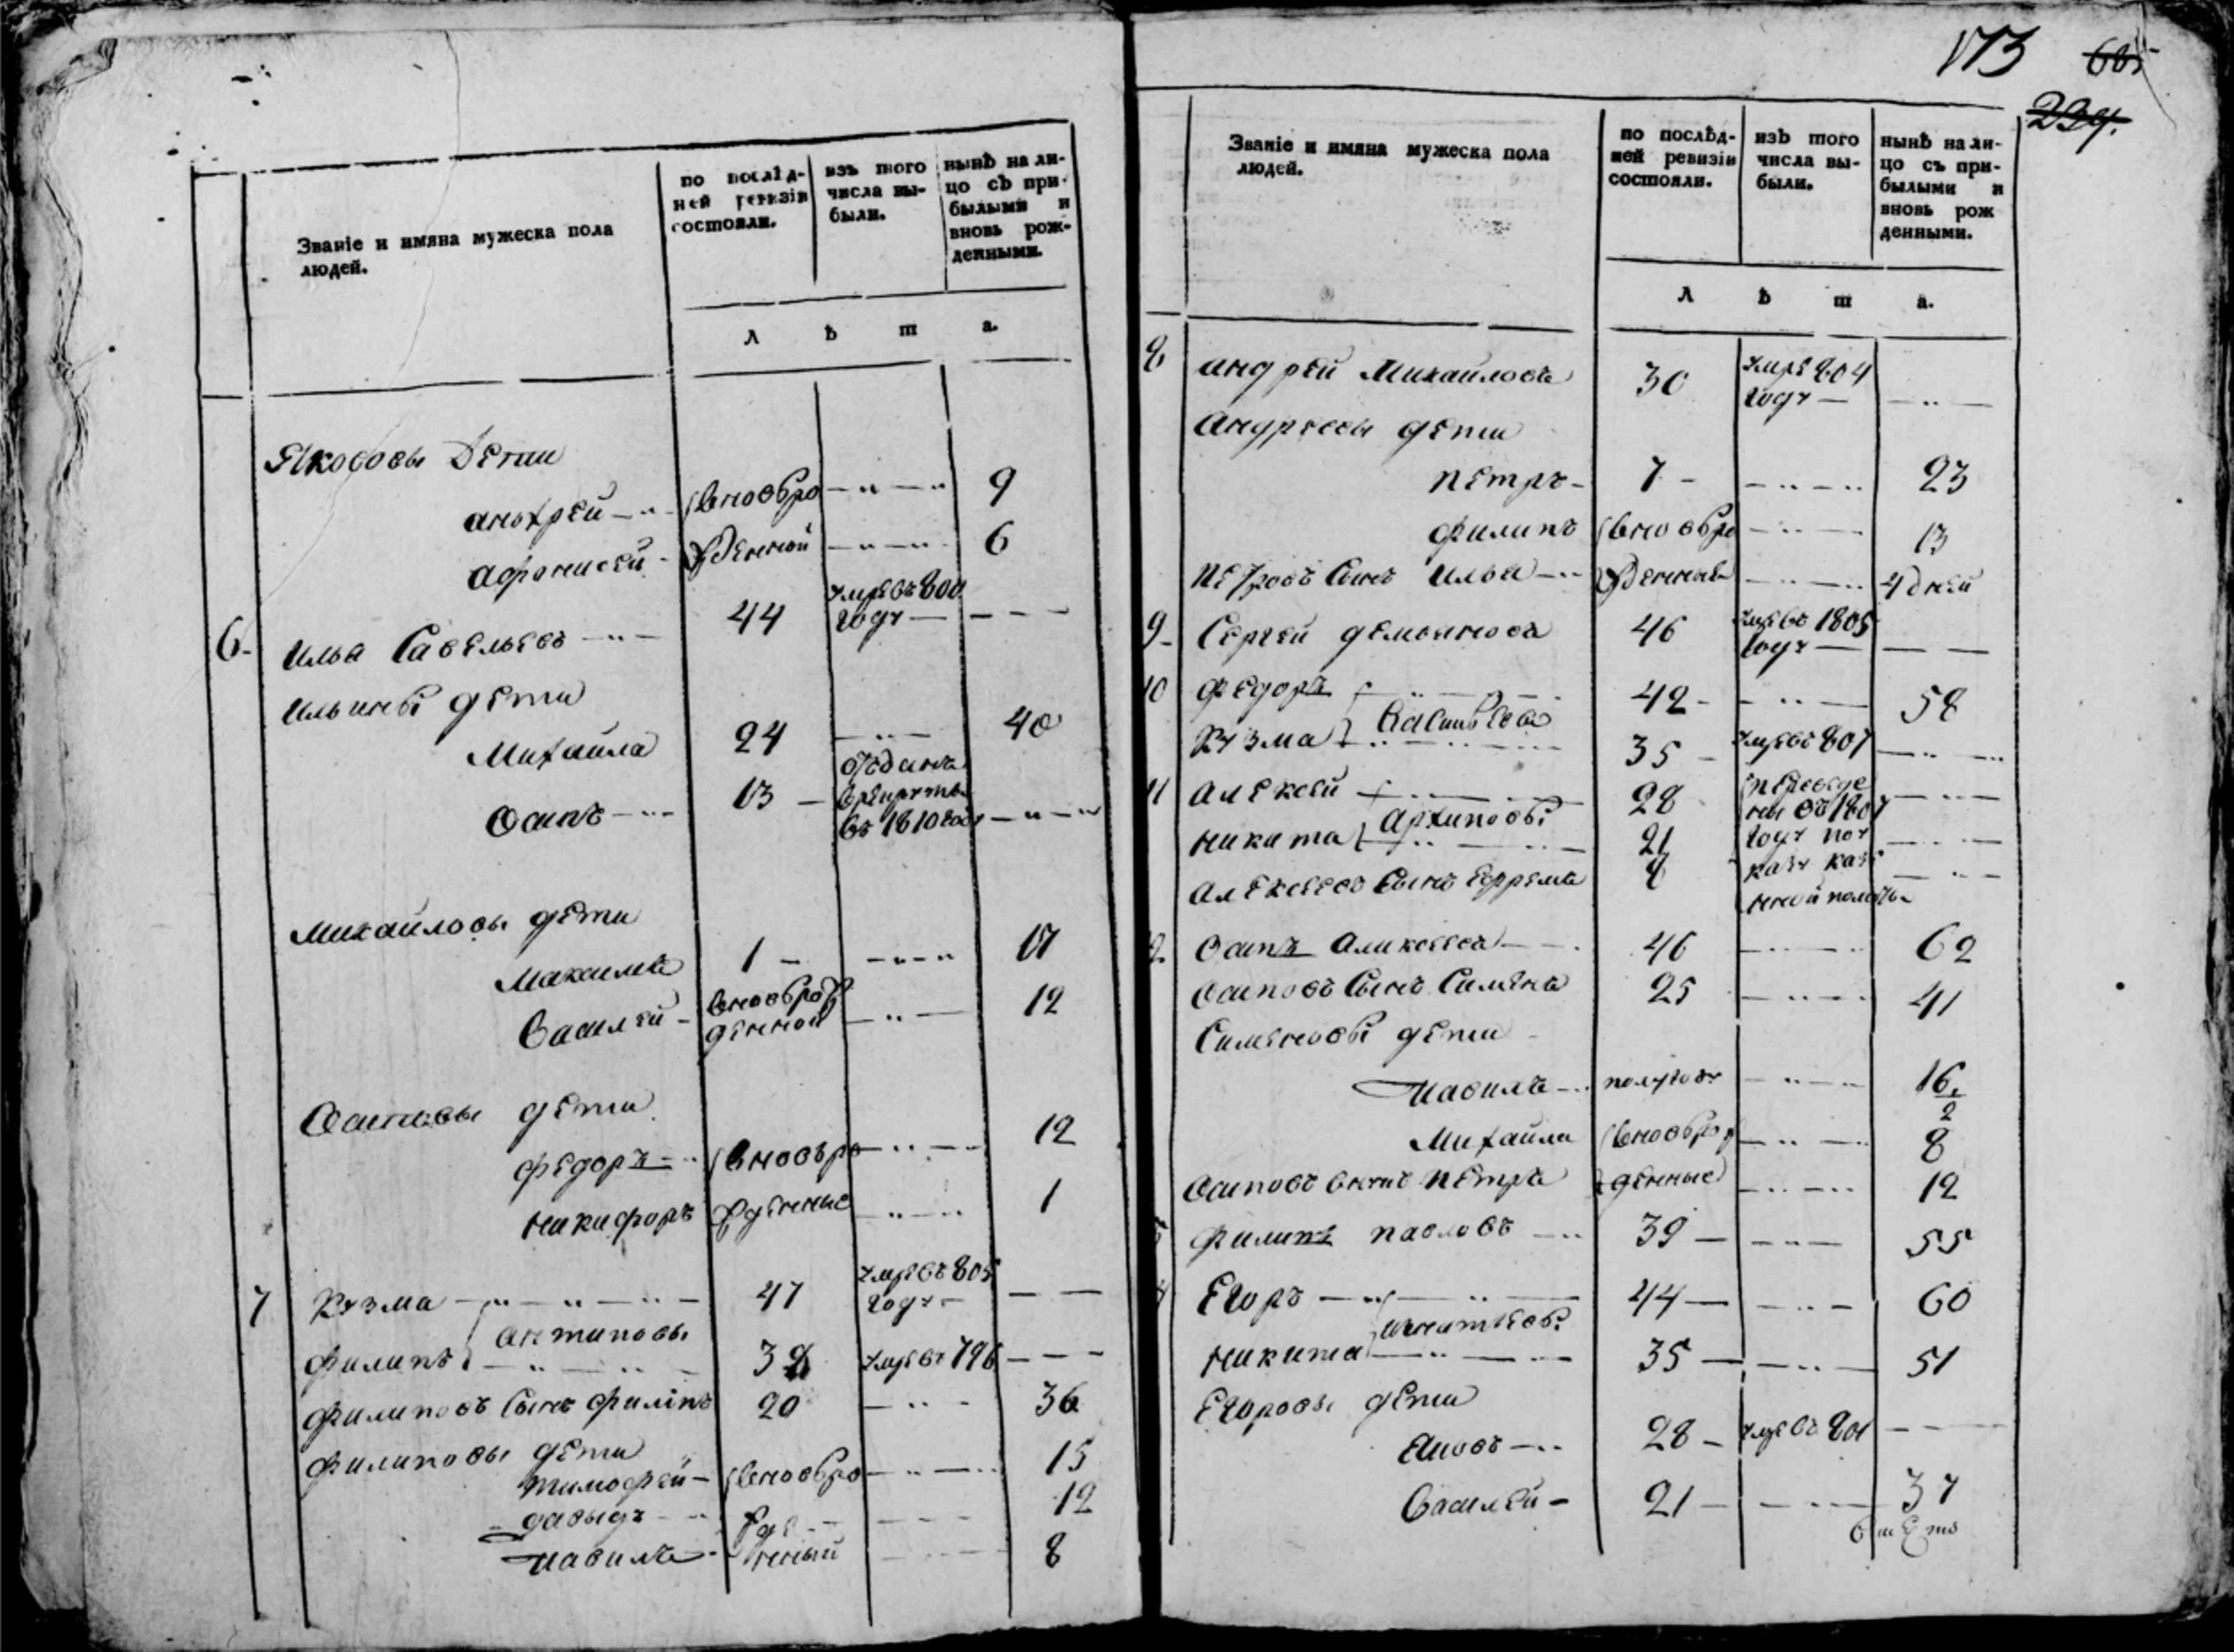 Званіе и имяна мужеска пола
людей.
по послѣд-
ней ревизіи
состояли.
изъ того
числа вы-
были.
нынѣ на ли-
цо съ при-
былыми и
вновь рож-
денными.
л ѣ т а.
Якововы Дети
андрей вновъро 9
афонисей жденной 6
6. Илья Савельевъ 44 умре въ 800
году
Ильины дети
Михайла 24 40
Осипъ 13 отданъ
в рекруты
въ 1810 году
Михайловы дети
Максимъ 1 17
Василей вновърож
денной 12
Осиповы дети
Федоръ вновъро 12
никифоръ жденные 1
7 Кузма 47 умре въ 805
году
антиповы
филипъ 32 умре въ 796
филиповъ сынъ филипъ 20 36
филиповы дети
тимофей вновъро 15
давыдъ жде 12
иавилъ нный 8
173 605
239.
Званіе и имяна мужеска пола
людей.
по послѣд-
ней ревизіи
состояли.
изъ того
числа вы-
были.
нынѣ на ли-
цо съ при-
былыми и
вновь рож
денными.
л ѣ т а.
8 андрей Михайловъ 30 умре 804
году
андреевы дети
петръ 7 23
филипъ вновъро 13
петровъ сынъ илья жденные 4 дней
9 Сергей демьяновъ 46 умре въ 1805
году
10 федоръ 42 58
Васильевы
Кузма 35 умре въ 807
11 алексей 28 переведе
ны въ 1807
архиповы
никита 21 году по у
алексеевъ сынъ ефремъ 8 казу казе
нной полаты
2. осипъ аликсеевъ 46 62
осиповъ сынъ Сименъ 25 41
Сименовы дети
иавилъ полугоду 16.
2
Михайла вновърож 8
осиповъ внукъ петръ денные 12
филипъ павловъ 39 55
Егоръ 44 60
игнатьевы
никита 35 51
Егоровы дети
умре въ 801
28
Василей 21 37